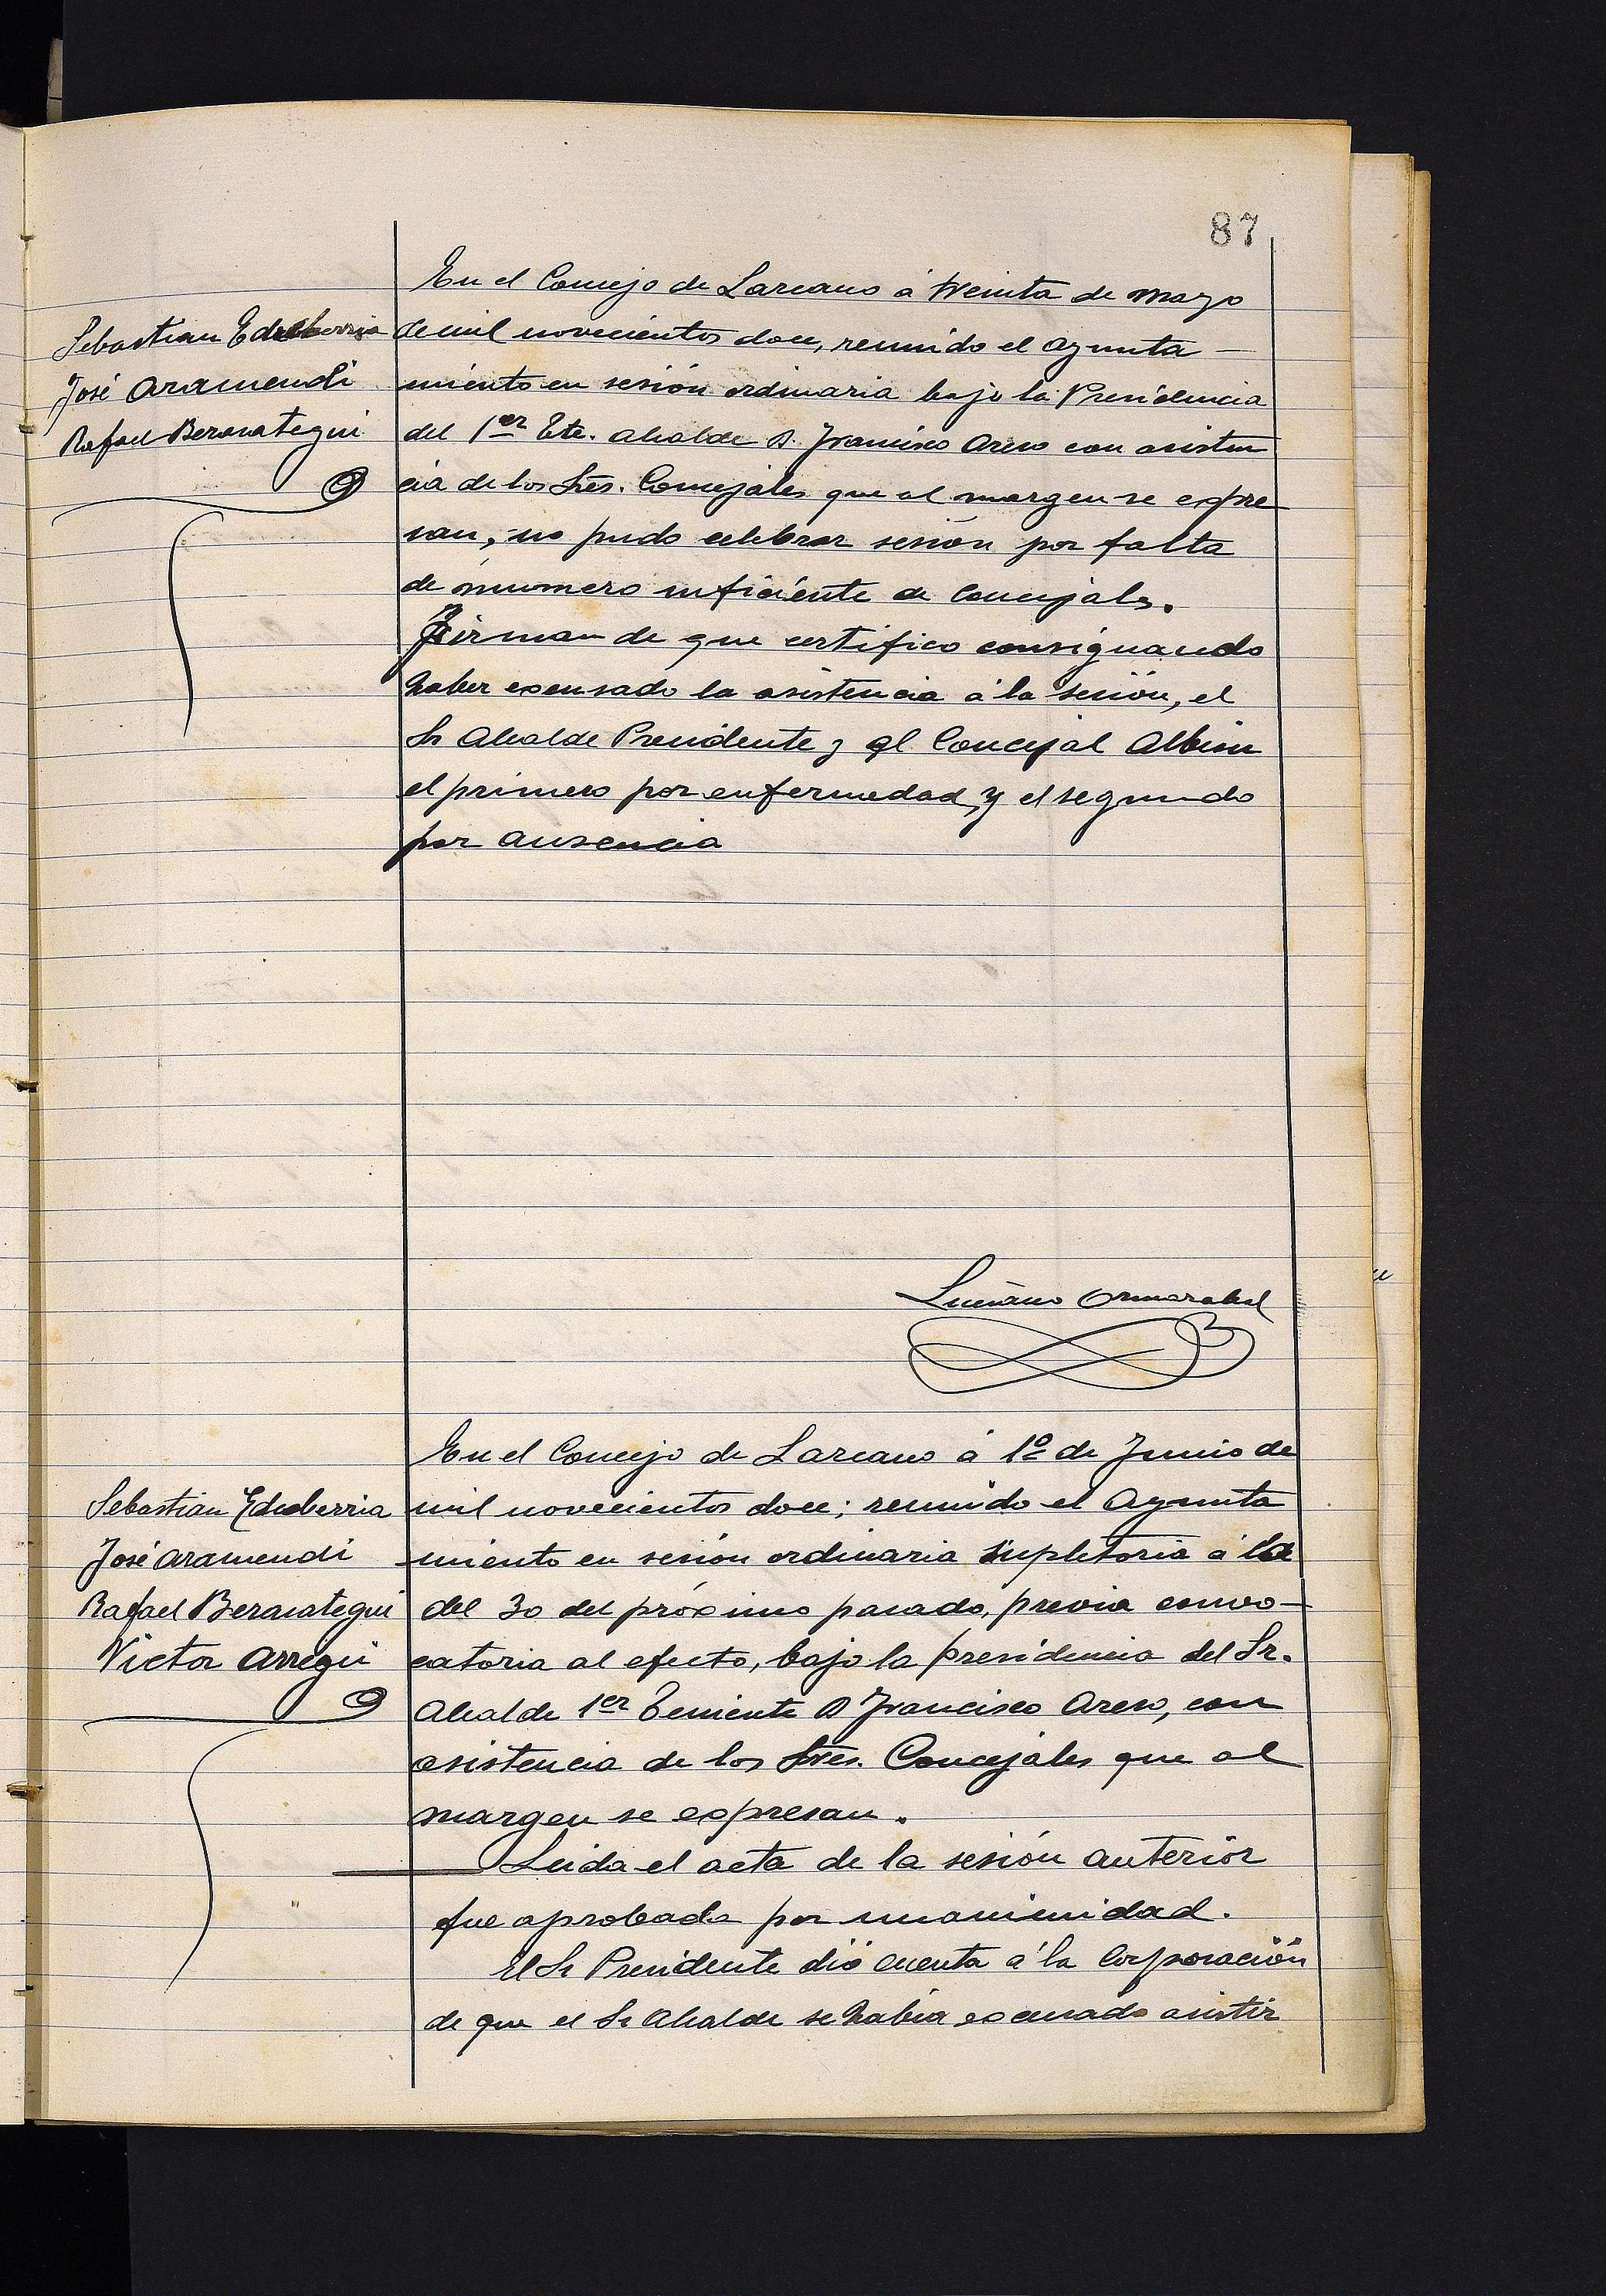 87
Sebastian Echeberria
José Aramendi
Rafael Berasategui
En el Concejo de Lazcano á treinta de mayo
de mil novecientos doce, reunido el Ayunta-
miento en sesión ordinaria bajo la Presidencia
del 1er Tte. Alcalde D. Francisco Areso con asisten
cia de los Sres. Concejales que al margen se expre
san, no pudo celebrar sesión por falta
de número suficiente de Concejales.
Firman de que certifico consignando
haber excusado la asistencia á la sesión, el
Sr Alcalde Presidente y el Concejal Albisu
el primero por enfermedad, y el segundo
por ausencia
Luciano Ormazabal
Sebastian Echeberria
José Aramendi
Rafael Berasategui
Victor Arregui
En el Concejo de Lazcano á 1º de Junio de
mil novecientos doce; reunido el Ayunta
miento en sesión ordinaria supletoria á la
del 30 del próximo pasado, previa convo-
catoria al efecto, bajo la presidencia del Sr.
Alcalde 1er Teniente D Francisco Areso, con
asistencia de los Sres. Concejales que al
margen se expresan.
Leida el acta de la sesión anterior
fue aprobada por unanimidad.
El Sr Presidente dió cuenta á la Corporación
de que el Sr Alcalde se habia excusado asistir